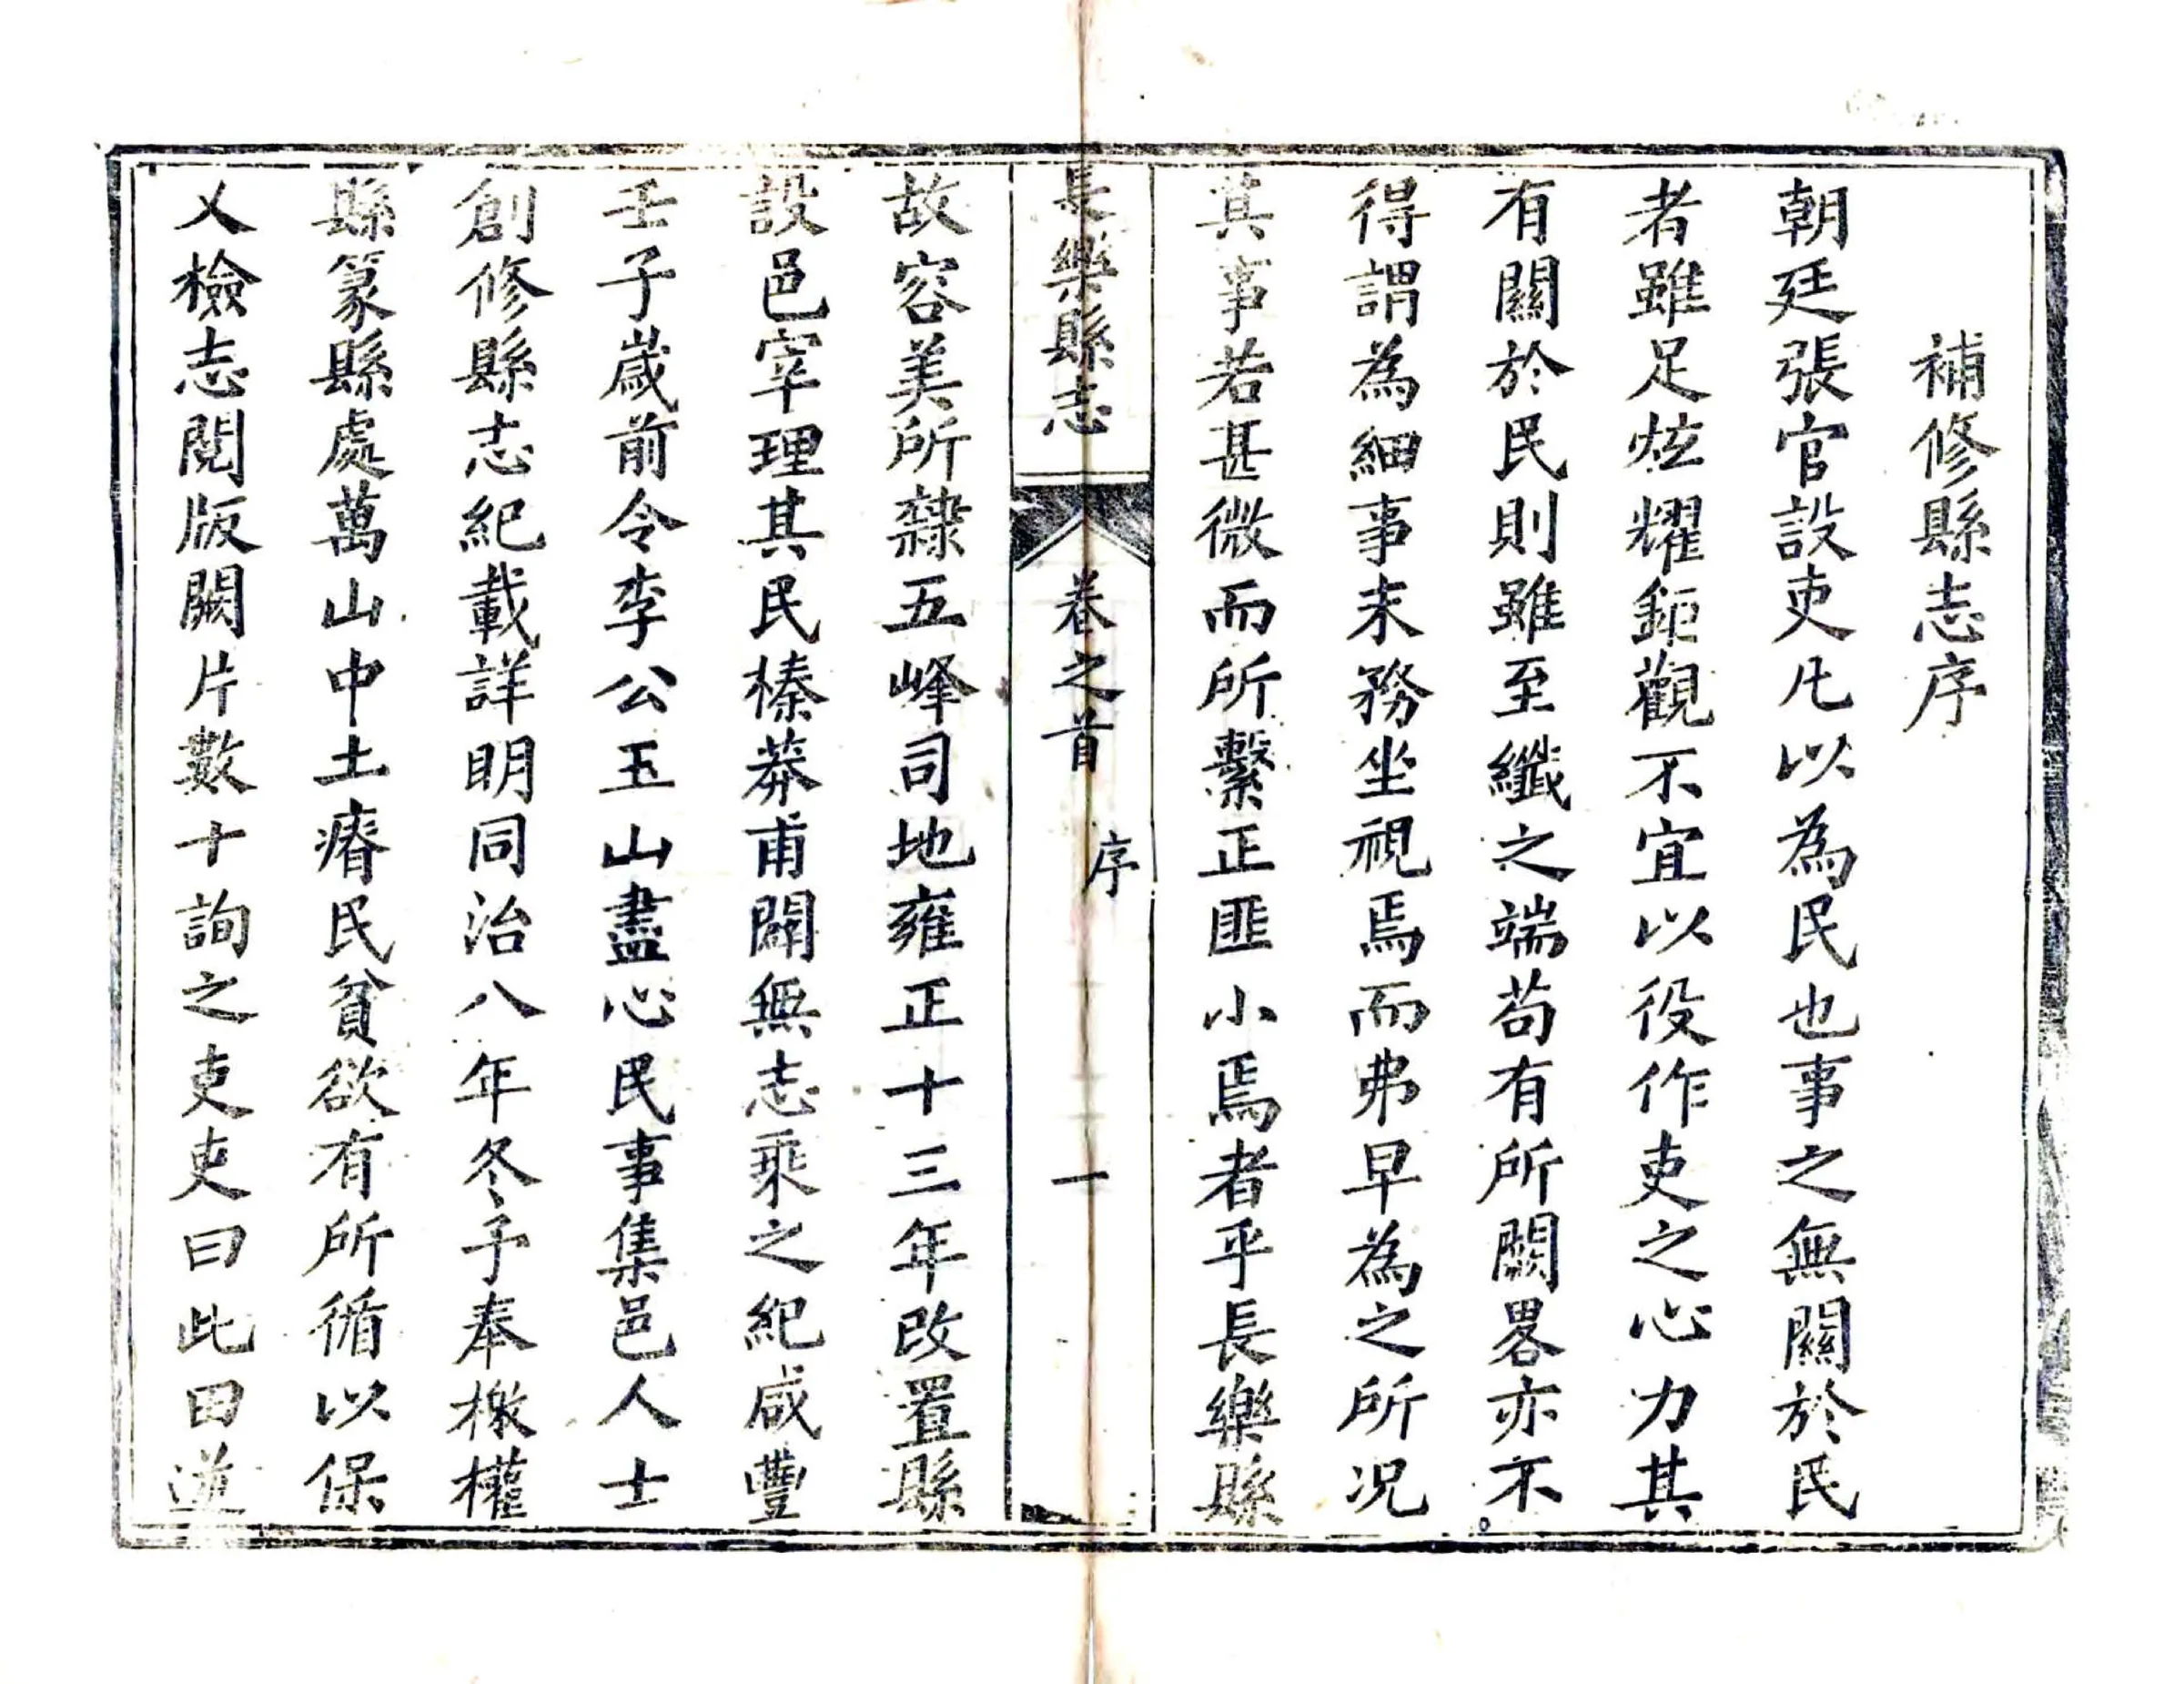 補修縣志序
朝廷張官設吏凡以為民也事之無關於民
者雖足炫耀鉅觀不宜以役作吏之心力其
有關於民則雖至纖之端苟有所闕畧亦不
得謂為細事末務坐視焉而弗早為之所况
其事若甚微而所繫正匪小焉者乎長樂縣
長樂縣志 卷之首 序 一
故容美所隸五峰司地雍正十三年改置縣
設邑宰理其民榛莽甫闢無志乘之紀咸豐
壬子歲前令李公玉山盡心民事集邑人士
創修縣志紀載詳明同治八年冬予奉檄權
縣篆縣處萬山中土瘠民貧欲有所循以保
乂檢志閱版闕片數十詢之吏吏曰此曰逆